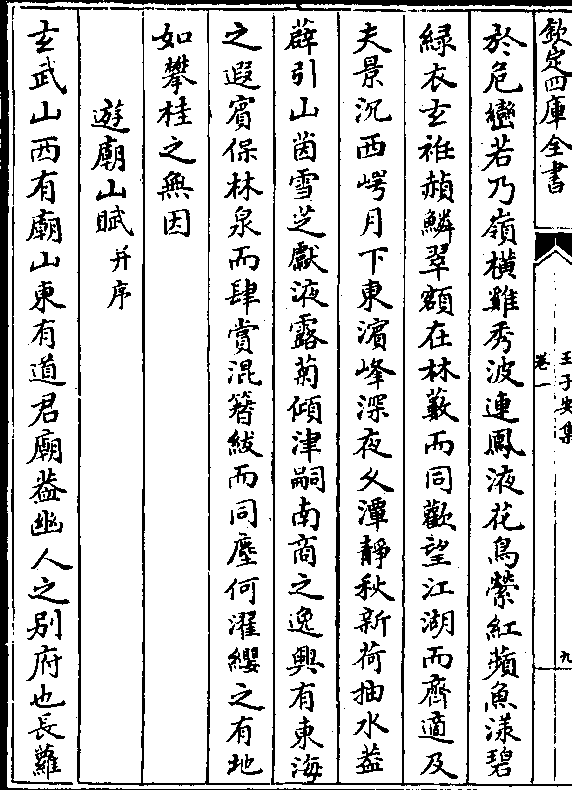 欽定四庫全書
王子安集
卷一
九
於危巒若乃嶺橫雞秀波連鳳液花鳥縈紅蘋魚漾碧
緑衣玄袵赬鱗翠額在林藪而同歡望江湖而齊適及
夫景沉西崿月下東濱峰深夜久潭靜秋新荷抽水葢
薜引山茵雪芝獻液露菊傾津嗣南商之逸興有東海
之遐賓保林泉而肆賞混簪紱而同塵何濯纓之有地
如攀桂之無因
遊廟山賦并序
玄武山西有廟山東有道君廟葢幽人之别府也長蘿